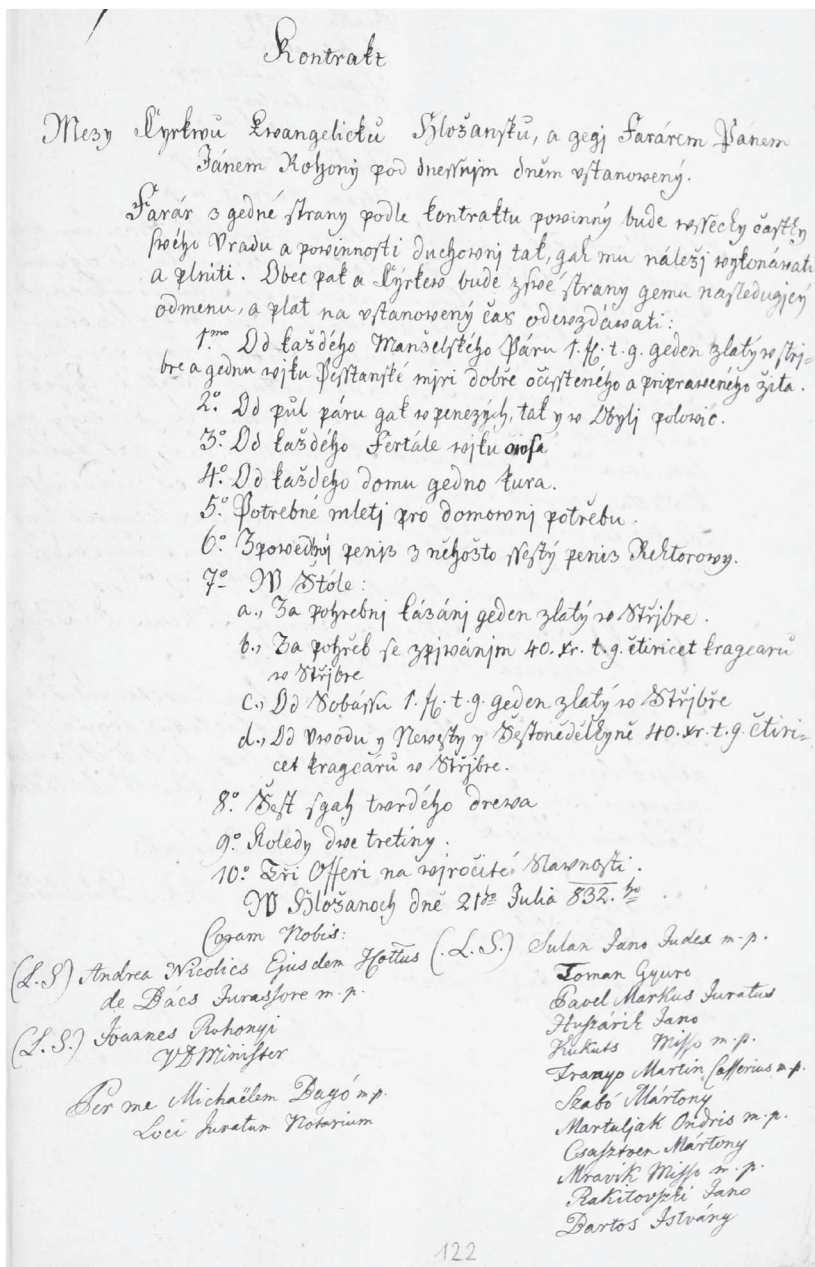 Kontrakt
Mezy Cyrkwů Ewangelicků Hložansků, a gegj Farárem Pánem
Jánem Rohoný pod dnessnjm dněm vstanowený.
Farár z gedné strany podle kontraktu powinný bude wssecky částky
swého Vradu a powinnosti duchownj tak, gak mu náležj wykonáwati
a plniti. Obec pak a Cýrkew bude zswé strany gemu nasledugjcý
odmenu, a plat na vstanowený čas odewzdáwati:
1mo Od každého Manželského Páru 1. fl. t. g. geden zlatý w strj-
bre a gednu wjku Pesstanské mjri dobře očisteného a pripraweného žita.
2o. Od půl páru gak w penezých, tak y w Obylj polowic.
3o. Od každého Fertále wjku owsa
4o. Od každeho domu gedno kura.
5o. Potrebné mletj pro domownj potřebu.
6o. Zpowědnj penjz z něhožto ssestý penjz Rektorowy.
7o. W Štóle:
a., Za pohrebnj kázánj geden zlatý w Střjbre.
b., Za pohřeb se zpjwánjm 40. xr. t. g. čtiricet kragcarů
w Střjbre
c., Od Sobássu 1. fl. t. g. geden zlatý w Střjbře
d., Od Vwodu y Newesty y Šestonědělkyně 40. xr. t. g. čtiri-
cet kragcárů w Střjbre.
8o. Šest sgah twrdého drewa
9o. Koledy dwe tretiny.
10o. Tři Offeri na wjročité Slawnosti.
W Hložanoch dně 21ho Julia 832. ho
Coram Nobis:
(L.S) Andrea Nicolics Ejusdem Cottus
de Bács Jurassore m. p.
(L.S.) Joannes Rohonyi
VDMinister
Per me Michaëlem Dagó m p.
Loci Juratum Notarium
(. L. S.) Sulan Jano Judex m. p.
Toman Gyuro
Pavel Markus Juratus
Huszárik Jano
Kukuts Misso m. p.
Franyo Martin Casserius m p.
Szabó Mártony
Martuljak Ondris m. p.
Császtven Mártony
Mravik Misso m. p.
Rakitovszki Jano
Bartos Istvány
122